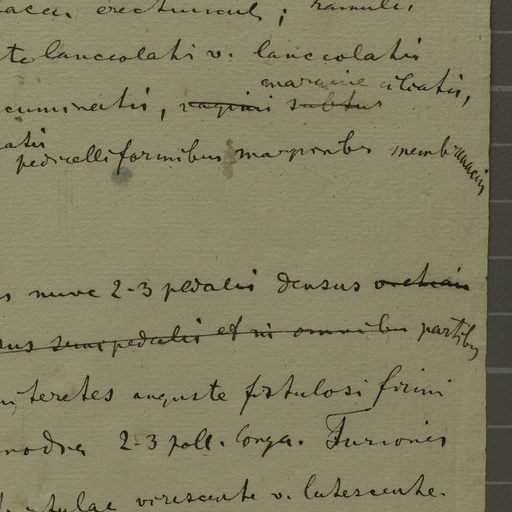 erectiuscul; ramulis
lanceolati v. lanceolatis
margine ciliatis,
cuminatis, vaginis subtus
atis
pedicelliformibus marginibus membranaceis
nunc 2-3 pedalis densus
semipedalis et in omnibus partibus
teretes anguste fistulosi firmi
2-3 poll. longa. Turiones
virescente v. lutescente.